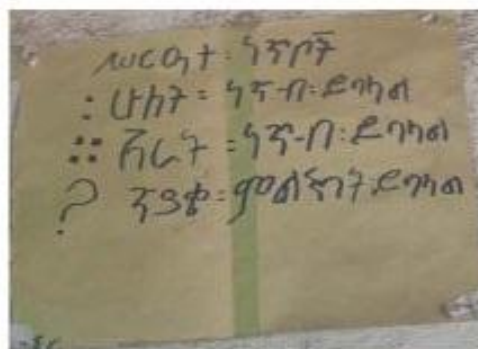 ሥርዓተ፡ ነጥቦች
፡ ሁለት = ነጥ-ብ፡ ይባላል
። አራት = ነጥ-ብ፡ ይባላል
? ጥያቄ፡ ምልክት፡ ይባላል